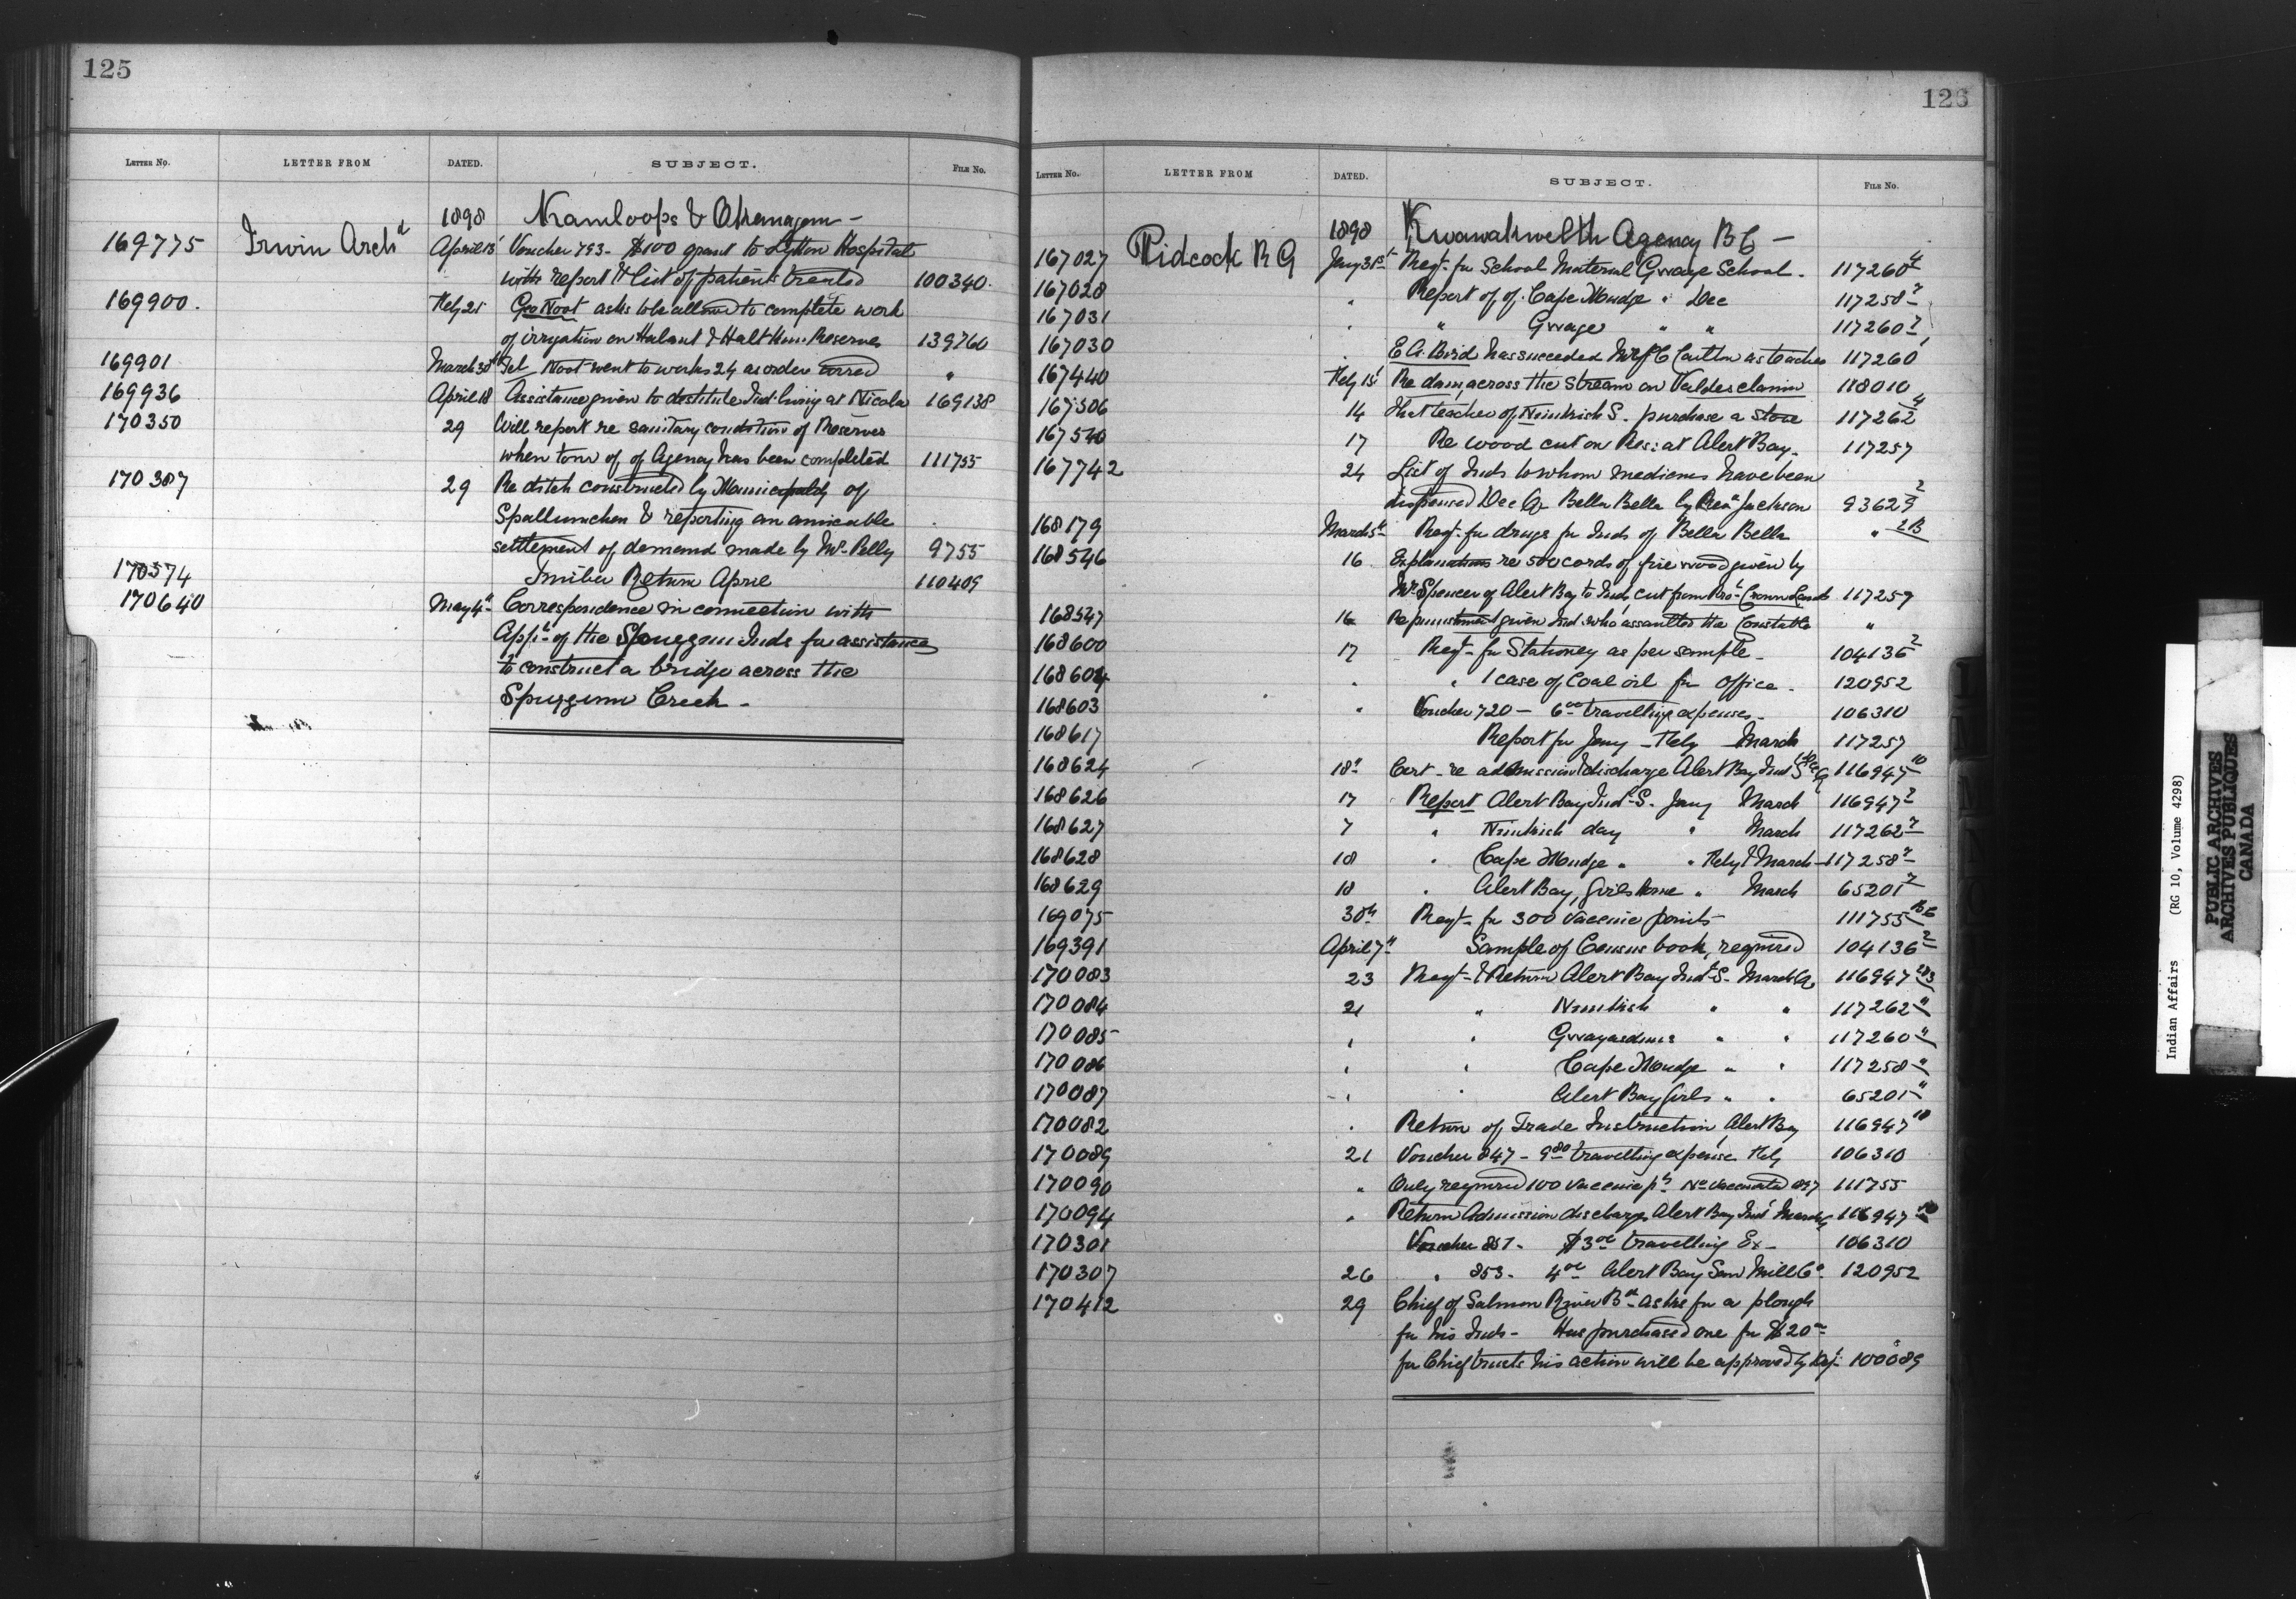 125
LETTER No. LETTER FROM DATED. SUBJECT. FILE No.
1898 Kamloops & Okanagan –
169775 Irwin Archd April 13 Voucher 793 – $100 grant to Lytton Hospital
with report & list of patients treated 100340.
169900. Feby 21 Geo Noot asks to be allowed to complete work
of irrigation on Halaut & Halt Reserves 139760
169901 March 30th Tel Noot went to works 24 as order 〃
169936 April 18 Assistance given to destitute Ind. living at Nicola 169138
170350 29 Will report re sanitary condition of Reserves
when tour of of Agency has been completed 111755
170387 29 Re ditch constructed by Municipality of
Spallumcheen & reporting an amicable
settlement of demand made by Mr Pelly 9755
170574 Timber Return April 110409
170640 May 4th Correspondence in connection with
Appn of the Spuzzum Inds for assistance
to construct a bridge across the
Spuzzum Creek –
126
LETTER No. LETTER FROM DATED. SUBJECT. FILE No.
1898 Kwawkewlth Agency B C –
167027 Pidcock R G Jany 31st Reqt. for School Material Gwaye School. 117260 4
167028 " Report of of. Cape Mudge " Dec 117258 2
167031 " " Gwaye " " 117260 2
167030 " E A. Bird has succeeded Mr as teacher 117260
167440 Feby 15 Re dam across the stream on Valdes claim 118010
167506 14 That teacher of Nimkish S. purchase a stove 117262 4
167540 17 Re wood cut on Res: at Alert Bay. 117257
167742 24 List of Inds to whom medicines have been
dispensed Dec Q Bella Bella by Rev Jackson 93629 2
168179 March 5th Reqt. for drugs for Inds of Bella Bella " 2B
168546 16 Explanations re 500 cords of fire wood given by
Mr Spencer of Alert Bay to Inds cut from Pro. Crown Lands 117257
168547 16 Re punishment given Ind. who assaulted the Constable "
168600 17 Reqt. for Stationery as per sample – 104136 2
168604 " " 1 case of Coal oil for office. 120952
168603 " Voucher 720 – 6 00 travelling expenses – 106310
168617 Report for Jany – Feby March 117257
168624 18th Cert – re admission & discharge Alert Bay Ind S 116947 10
168626 17 Report Alert Bay Ind. S. Jany March 116947 2
168627 7 " Nimkish day " March 117262 2
168628 18 " Cape Mudge " " Feby & March – 117258 2
168629 18 " Alert Bay, Girls Home " March 65201 2
169075 30th Reqt. for 300 vaccine points 111755 BC
169391 April 7th Sample of Census book, required 104136 2
170083 23 Reqt. & Return Alert Bay Ind. S. March Q 116947 2&3
170084 21 " Nimkish " " 117262 "
170085 " " Gwayasdums " " 117260 "
170086 " " Cape Mudge " " 117258 "
170087 " " Alert Bay Girls " " 65201 "
170082 " Return of Trade Instruction, Alert Bay 116947 10
170089 21 Voucher 847 – 9 80 travelling expense, Feby 106310
170090 " Only required 100 vaccine pts No vaccinated 1897 111755
170094 " Return Admission discharges Alert Bay Ind. March Q 116947 10
170301 Voucher 851. $3 00 travelling Ex – 106310
170307 26 " 853. 4 00 Alert Bay Saw Mill Co. 120952
170412 29 Chief of Salmon River Bd asks for a plough
for his Inds – Has purchased one for $20 00
for Chief trusts his action will be approved by Dep. 100089
Indian Affairs (RG 10, Volume 4298)
PUBLIC ARCHIVES
ARCHIVES PUBLIQUES
CANADA